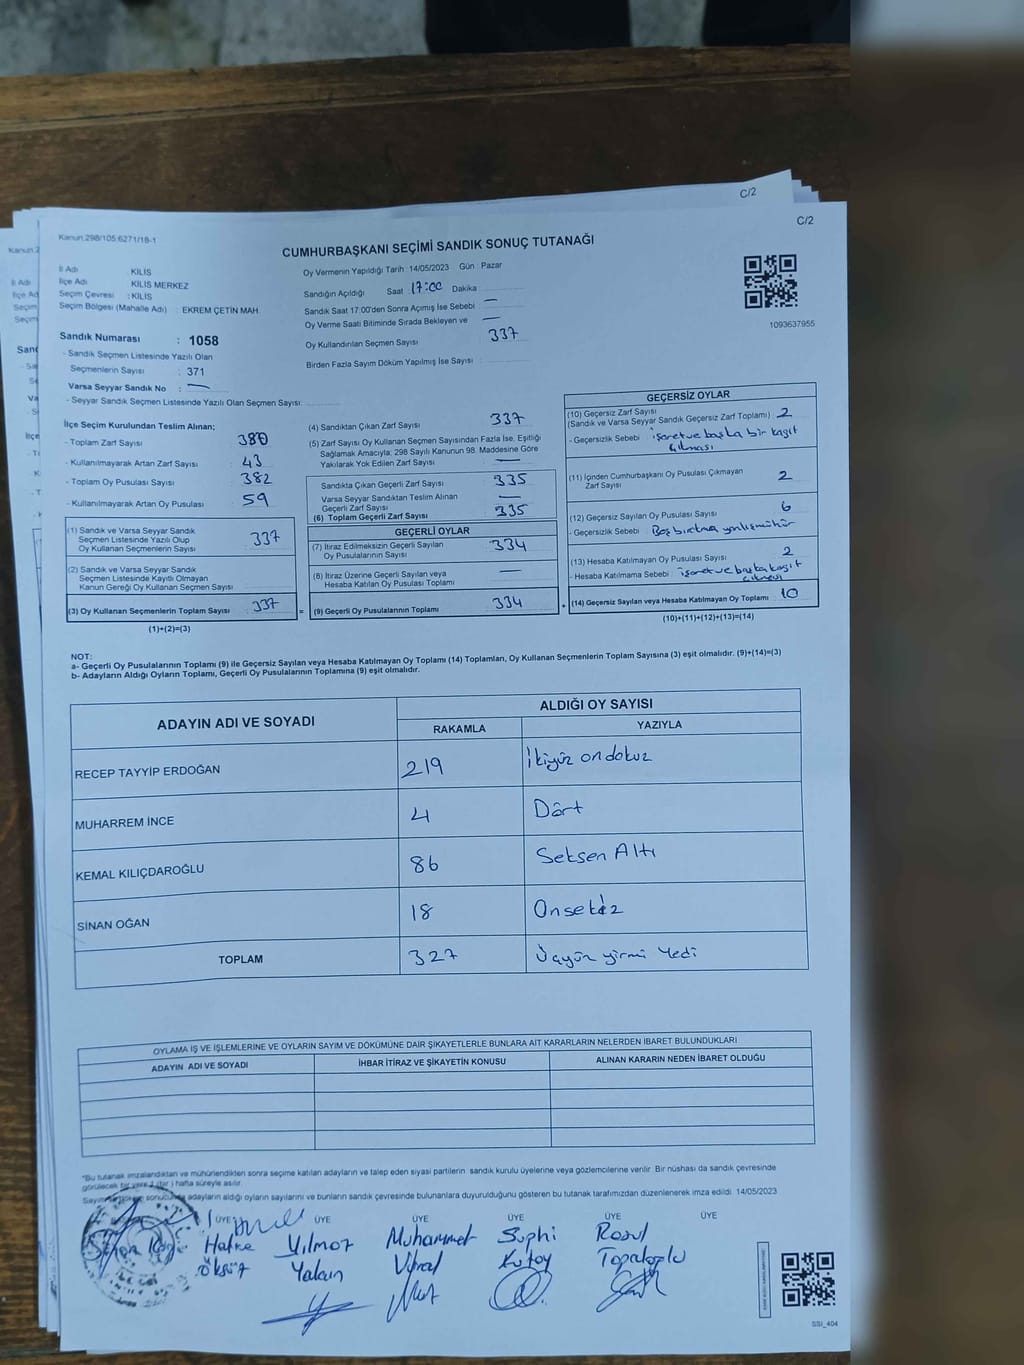 C/2
C/2
Kanun.298/105;6271/18-1
CUMHURBAŞKANI SEÇİMİ SANDIK SONUÇ TUTANAĞI
İl Adı KİLİS
İlçe Adı KİLİS MERKEZ
Seçim Çevresi : KİLİS
Seçim Bölgesi (Mahalle Adı) : EKREM ÇETİN MAH.
Sandık Numarası : 1058
- Sandık Seçmen Listesinde Yazılı Olan
Seçmenlerin Sayısı : 371
Varsa Seyyar Sandık No : —
- Seyyar Sandık Seçmen Listesinde Yazılı Olan Seçmen Sayısı:
Oy Vermenin Yapıldığı Tarih :14/05/2023 Gün Pazar
Sandığın Açıldığı Saat 17:00 Dakika
Sandık Saat 17:00'den Sonra Açımış İse Sebebi —
Oy Verme Saati Bitiminde Sırada Bekleyen ve —
Oy Kullandırılan Seçmen Sayısı 337
Birden Fazla Sayım Döküm Yapılmış İse Sayısı :
1093637955
İlçe Seçim Kurulundan Teslim Alınan;
- Toplam Zarf Sayısı : 380
- Kullanılmayarak Artan Zarf Sayısı : 43
- Toplam Oy Pusulası Sayısı : 382
- Kullanılmayarak Artan Oy Pusulası : 59
(1) Sandık ve Varsa Seyyar Sandık
Seçmen Listesinde Yazılı Olup
Oy Kullanan Seçmenlerin Sayısı 337
(2) Sandık ve Varsa Seyyar Sandık
Seçmen Listesinde Kayıtlı Olmayan
Kanun Gereği Oy Kullanan Seçmen Sayısı
(3) Oy Kullanan Seçmenlerin Toplam Sayısı 337
(1)+(2)=(3)
(4) Sandıktan Çıkan Zarf Sayısı 337
(5) Zarf Sayısı Oy Kullanan Seçmen Sayısından Fazla İse, Eşitliği
Sağlamak Amacıyla; 298 Sayılı Kanunun 98. Maddesine Göre
Yakılarak Yok Edilen Zarf Sayısı —
Sandıkta Çıkan Geçerli Zarf Sayısı 335
Varsa Seyyar Sandıktan Teslim Alınan
Geçerli Zarf Sayısı —
(6) Toplam Geçerli Zarf Sayısı 335
GEÇERLİ OYLAR
(7) İtiraz Edilmeksizin Geçerli Sayılan
Oy Pusulalarının Sayısı 334
(8) İtiraz Üzerine Geçerli Sayılan veya
Hesaba Katılan Oy Pusulası Toplamı —
= (9) Geçerli Oy Pusulalarının Toplamı 334
GEÇERSİZ OYLAR
(10) Geçersiz Zarf Sayısı
(Sandık ve Varsa Seyyar Sandık Geçersiz Zarf Toplamı) : 2
- Geçersizlik Sebebi işaret ve başka bir kağıt
çıkması
(11) İçinden Cumhurbaşkanı Oy Pusulası Çıkmayan
Zarf Sayısı 2
(12) Geçersiz Sayılan Oy Pusulası Sayısı 6
- Geçersizlik Sebebi : Boş bırakma yanlış mühür
(13) Hesaba Katılmayan Oy Pusulası Sayısı 2
- Hesaba Katılmama Sebebi : işaret ve başka kağıt
çıkması
+ (14) Geçersiz Sayılan veya Hesaba Katılmayan Oy Toplamı 10
(10)+(11)+(12)+(13)=(14)
NOT:
a- Geçerli Oy Pusulalarının Toplamı (9) ile Geçersiz Sayılan veya Hesaba Katılmayan Oy Toplamı (14) Toplamları, Oy Kullanan Seçmenlerin Toplam Sayısına (3) eşit olmalıdır. (9)+(14)=(3)
b- Adayların Aldığı Oyların Toplamı, Geçerli Oy Pusulalarının Toplamına (9) eşit olmalıdır.
ADAYIN ADI VE SOYADI ALDIĞI OY SAYISI
RAKAMLA YAZIYLA
RECEP TAYYİP ERDOĞAN 219 İkiyüz ondokuz
MUHARREM İNCE 4 Dört
KEMAL KILIÇDAROĞLU 86 Seksen Altı
SİNAN OĞAN 18 Onsekiz
TOPLAM 327 Üçyüz yirmi Yedi
OYLAMA İŞ VE İŞLEMLERİNE VE OYLARIN SAYIM VE DÖKÜMÜNE DAİR ŞİKAYETLERLE BUNLARA AİT KARARLARIN NELERDEN İBARET BULUNDUKLARI
ADAYIN ADI VE SOYADI İHBAR İTİRAZ VE ŞİKAYETİN KONUSU ALINAN KARARIN NEDEN İBARET OLDUĞU
*Bu tutanak imzalandıktan ve mühürlendikten sonra seçime katılan adayların ve talep eden siyasi partilerin sandık kurulu üyelerine veya gözlemcilerine verilir. Bir nüshası da sandık çevresinde
görülecek bir yere 2 (bir ) hafta süreyle asılır.
sonucunda adayların aldığı oyların sayılarını ve bunların sandık çevresinde bulunanlara duyurulduğunu gösteren bu tutanak tarafımızdan düzenlenerek imza edildi. 14/05/2023
ÜYE ÜYE ÜYE ÜYE ÜYE ÜYE
Yılmaz Muhammet Suphi Resul
Öksüz Yalçın Vural Kutay Topaloğlu
SSI_404